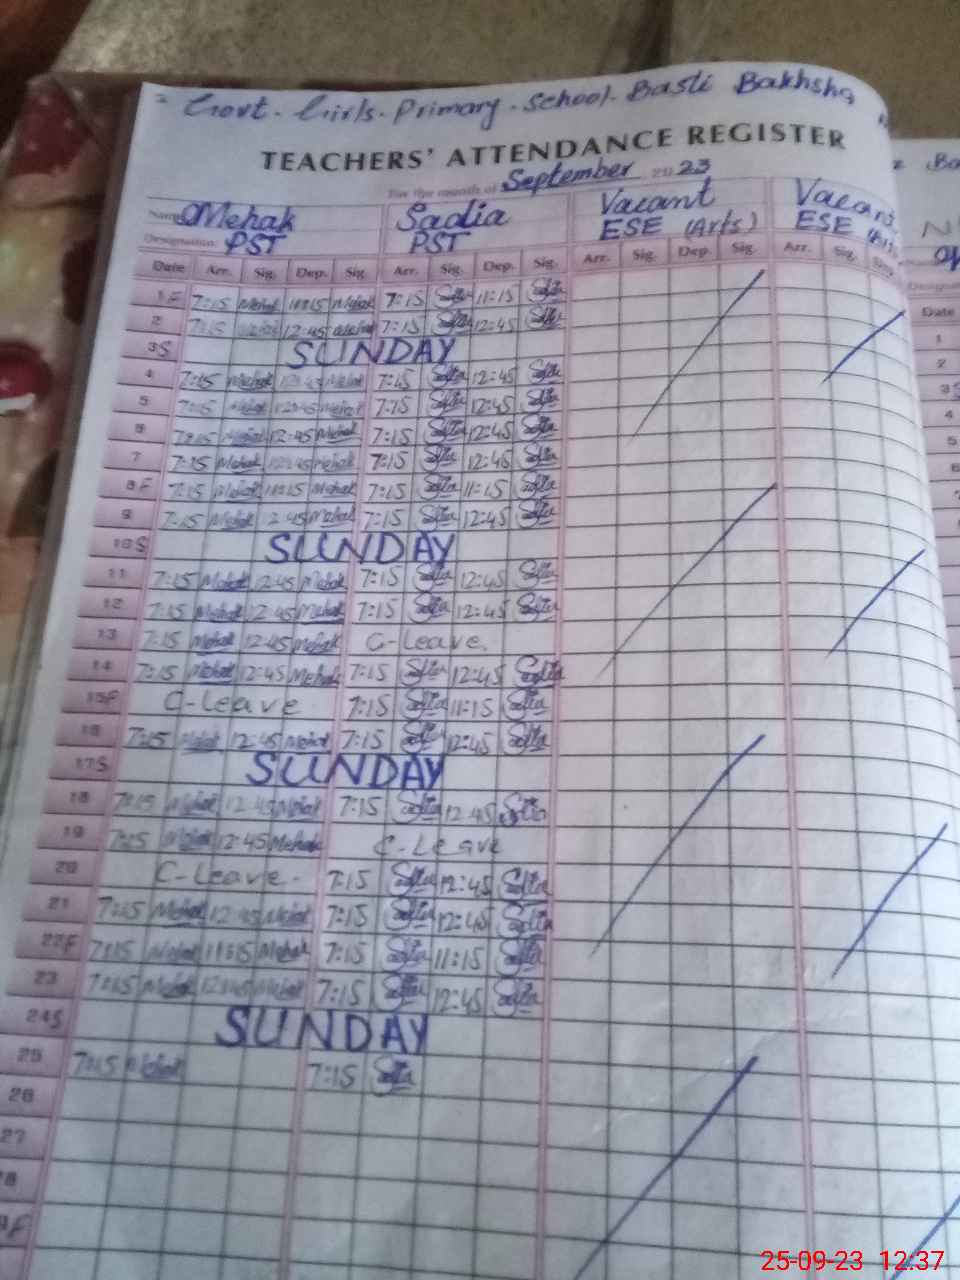 Govt. Girls. Primary. School. Basti Bakhsha
TEACHERS' ATTENDANCE REGISTER
For the month of September 2023
Name Mehak Sadia Vacant Vacant
Designation: PST PST ESE (Arts) ESE
Date Arr. Sig. Dep. Sig. Arr. Sig. Dep. Sig. Arr. Sig. Dep. Sig. Arr. Sig. Dep.
1 F 7:15 Mehak 11:15 Mehak 7:15 11:15
2 7:15 Mehak 12:45 Mehak 7:15 12:45
3 S SUNDAY
4 7:15 Mehak 12:45 Mehak 7:15 12:45
5 7:15 Mehak 12:45 Mehak 7:15 12:45
6 7:15 Mehak 12:45 Mehak 7:15 12:45
7 7:15 Mehak 12:45 Mehak 7:15 12:45
8 F 7:15 Mehak 11:15 Mehak 7:15 11:15
9 7:15 Mehak 12:45 Mehak 7:15 12:45
10 S SUNDAY
11 7:15 Mehak 12:45 Mehak 7:15 12:45
12 7:15 Mehak 12:45 Mehak 7:15 12:45
13 7:15 Mehak 12:45 Mehak C-Leave.
14 7:15 Mehak 12:45 Mehak 7:15 12:45
15 F C-Leave 7:15 11:15
16 7:15 Mehak 12:45 Mehak 7:15 12:45
17 S SUNDAY
18 7:15 Mehak 12:45 Mehak 7:15 12:45
19 7:15 Mehak 12:45 Mehak C-Leave
20 C-Leave- 7:15 12:45
21 7:15 Mehak 12:45 Mehak 7:15 12:45
22 F 7:15 Mehak 11:15 Mehak 7:15 11:15
23 7:15 Mehak 12:45 Mehak 7:15 12:45
24 S SUNDAY
25 7:15 Mehak 7:15
26
27
Date
1
2
3
4
5
6
25-09-23 12:37